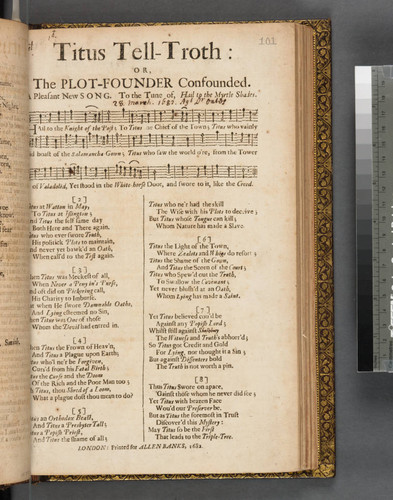 101
Titus Tell-Troth:
OR,
The PLOT-FOUNDER Confounded.
A Pleasant New SONG. To the Tune of, Hail to the Myrtle Shades.
28. March. 1682.
Ail to the Knight of the Post; To Titus the Chief of the Town; Titus who vainly
did boast of the Salamancha Gown; Titus who saw the world o're, from the Tower
of Valadolid, Yet stood in the White horse Door, and swore to it, like the Creed.
[2]
Titus at Watton in May,
To Titus at Islington;
And Titus the same day
Both Here and There again.
Titus who ever swore Truth,
His politick Plots to maintain,
And never yet bawk'd an Oath,
When call'd to the Test again.
[3]
Then Titus was Meekest of all,
When Never a Peny in's Purse,
And oft did on Pickering call,
His Charity to Imburse.
But when He swore Damnable Oaths,
And Lying esteemed no Sin,
Then Titus was One of those
Whom the Devil had entred in.
[4]
Then Titus the Frown of Heav'n,
And Titus a Plague upon Earth;
Titus who'l ne're be Forgiven,
Curs'd from his Fatal Birth;
the Curse and the Doom
Of the Rich and the Poor Man too;
Titus, thou Shred of a Loom,
What a plague dost thou mean to do?
[5]
an Orthodox Beast,
And Titus a Presbyter Tall;
Titus a Popish Priest,
And Titus the shame of all;
Titus who ne'r had the skill
The Wise with his Plots to deceive;
But Titus whose Tongue can kill;
Whom Nature has made a Slave
[6]
Titus the Light of the Town,
Where Zealots and Whigs do resort;
Titus the Shame of the Gown,
And Titus the Scorn of the Court;
Titus who Spew'd out the Truth,
To Swallow the Covenant;
Yet never blusht'd at an Oath,
Whom Lying has made a Saint.
[7]
Yet Titus believed cou'd be
Against any Popish Lord;
Whilst still against
The Witness and Truth's abhorr'd;
So Titus got Credit and Gold
For Lying, nor thought it a Sin;
But against Dissenters bold
The Truth is not worth a pin.
[8]
Thus Titus Swore on apace,
'Gainst those whom he never did see;
Yet Titus with brazen Face
Wou'd our Preserver be.
But as Titus the foremost in Trust
Discover'd this Mystery:
May Titus so be the First
That leads to the Triple-Tree.
LONDON: Printed for ALLEN BANKS, 1682.